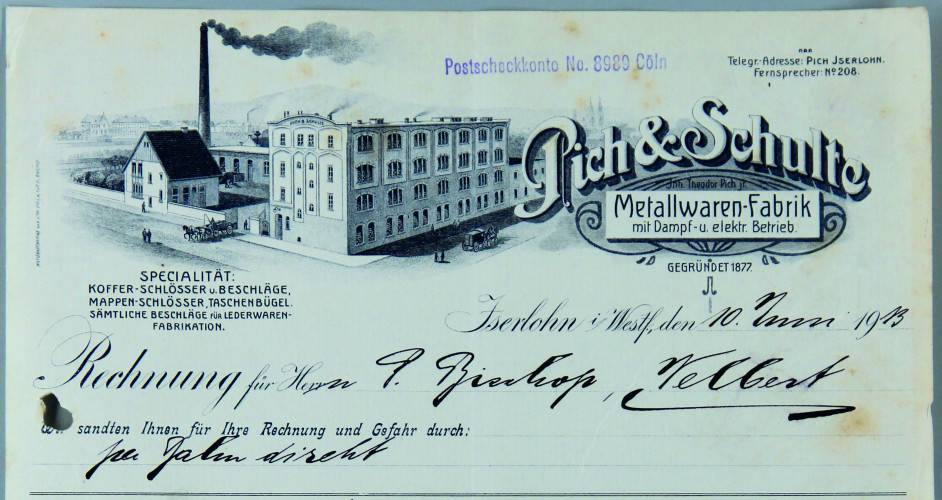 Postscheckkonto No. 8989 Cöln
Telegr.-Adresse: PICH JSERLOHN.
Fernsprecher: No 208.
PICH & SCHULTE
Pich & Schulte
Inh. Theodor Pich jr.
Metallwaren-Fabrik
mit Dampf- u. elektr. Betrieb.
GEGRÜNDET 1877.
SPECIALITÄT:
KOFFER-SCHLÖSSER u. BESCHLÄGE,
MAPPEN-SCHLÖSSER, TASCHENBÜGEL.
SÄMTLICHE BESCHLÄGE FÜR LEDERWAREN-
FABRIKATION.
Iserlohn i/Westf., den 10. Juni 1913
Rechnung für Herrn P. Bischop, Velbert
Wir sandten Ihnen für Ihre Rechnung und Gefahr durch:
per Bahn direkt